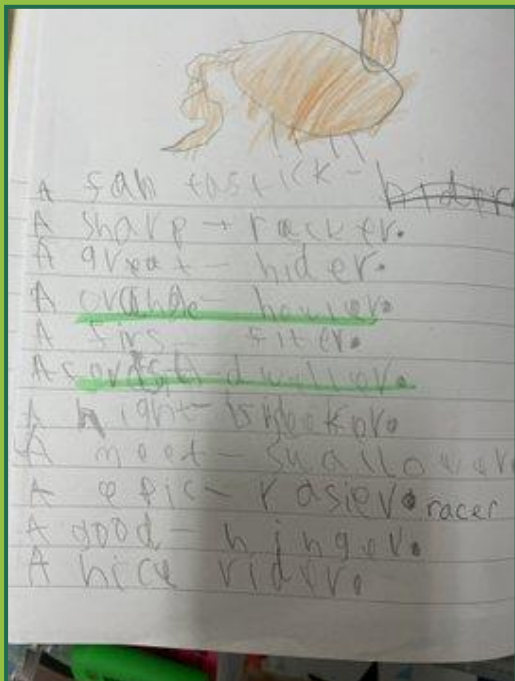 A fan tastick -
A sharp - racker.
A great - hider.
A orange - howler.
A firs fiter.
A dweller.
A night -
A meet - swallower
A epic - rasier. racer
A good - hinger.
A nice rider.